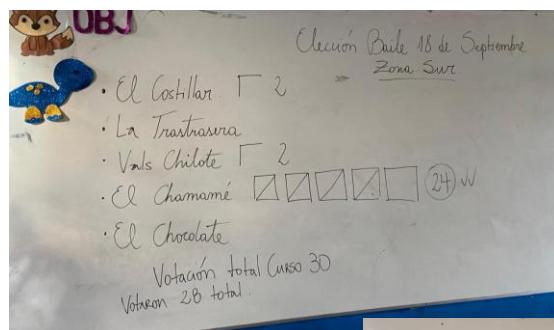 OBJ
Elección Baile 18 de Septiembre
Zona Sur
• El Costillar 2
• La Trastrasera
• Vals Chilote 2
• El Chamamé 24
• El Chocolate
Votación total Curso 30
Votaron 28 total.